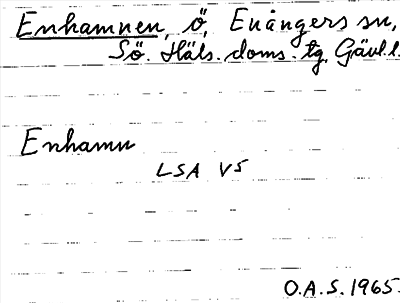 Enhamnen, ö, Enångers sn,
Sö. Häls. doms. tg. Gävl.l.
Enhamn
LSA V5
O.A.S. 1965.